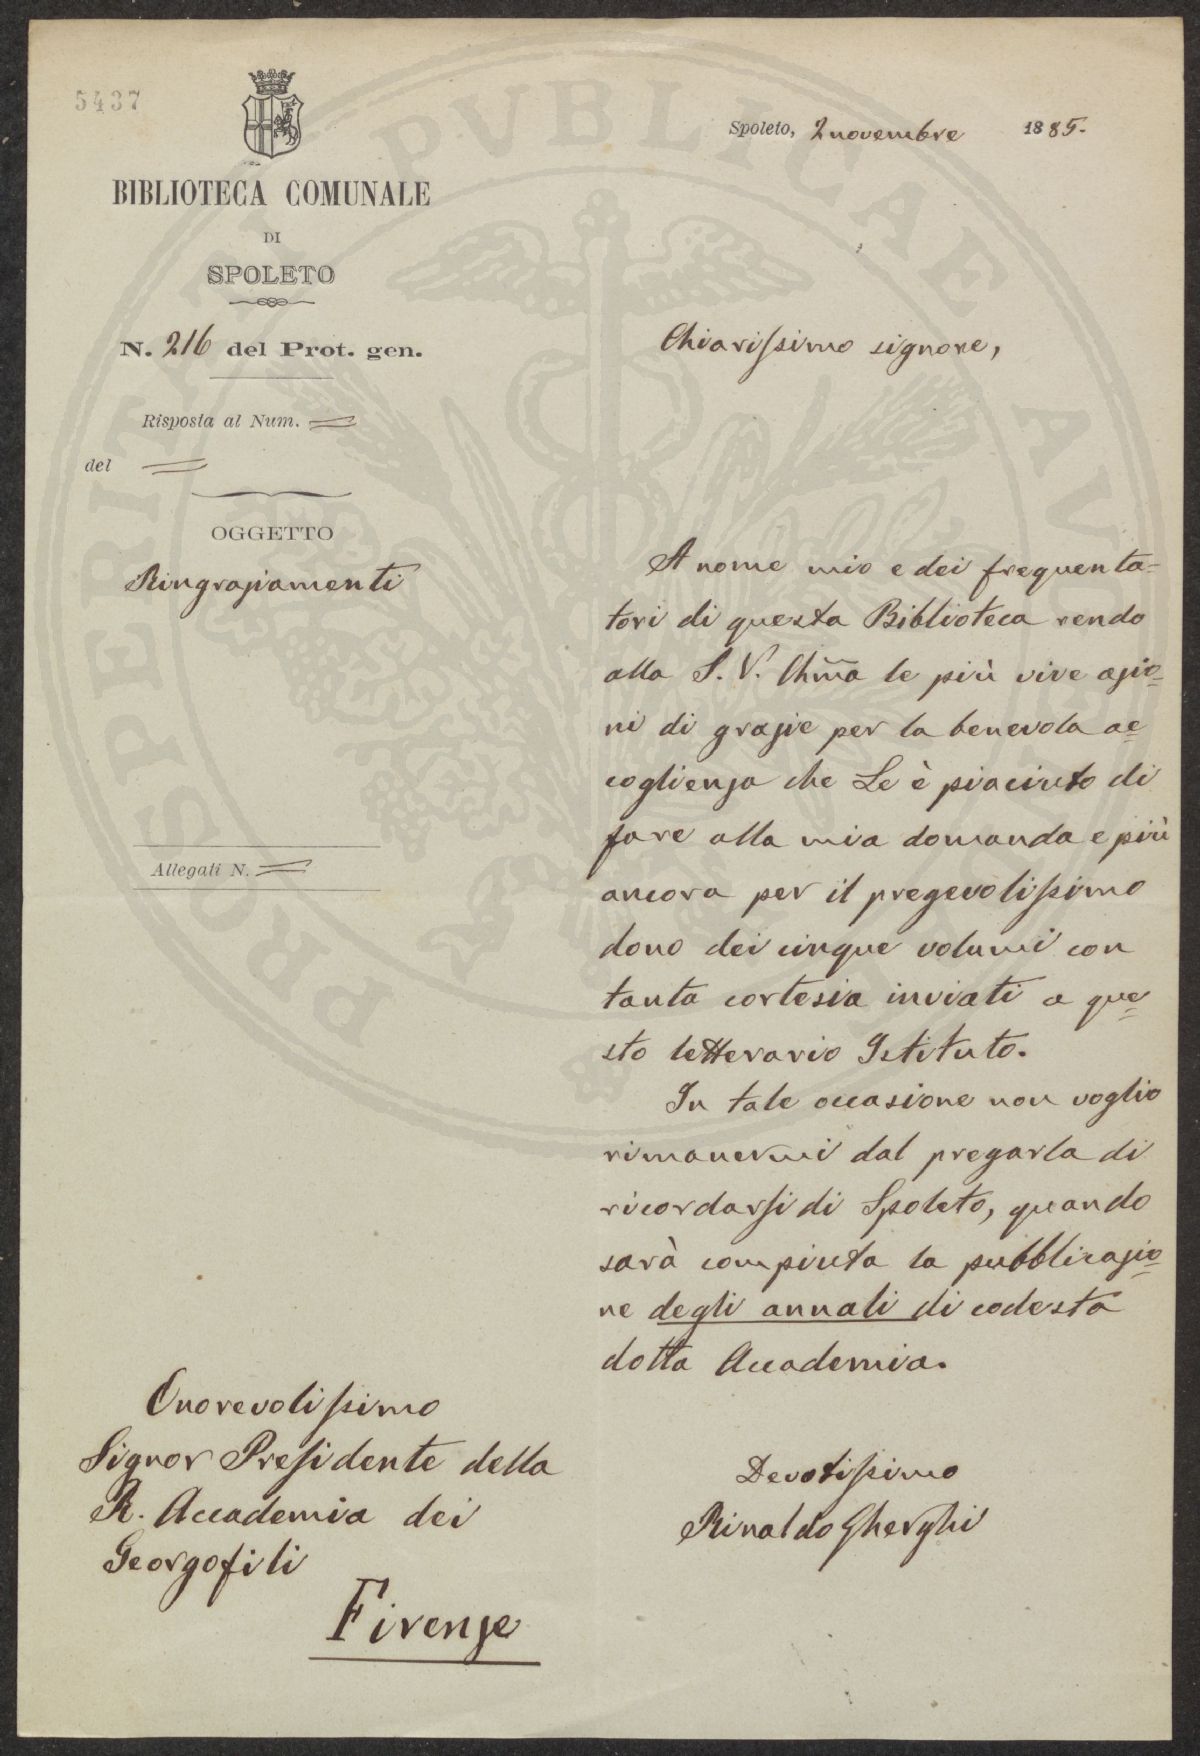 5437
BIBLIOTECA COMUNALE
DI
SPOLETO
N. 216 del Prot. gen.
Risposta al Num. =
del =
OGGETTO
Ringraziamenti
Allegati N. =
Spoleto, 2 novembre 1885.
Chiarissimo signore,
A nome mio e dei frequenta=
tori di questa Biblioteca rendo
alla S. V. Chma le più vive azio=
ni di grazie per la benevola ac=
coglienza che Le è piaciuto di
fare alla mia domanda e più
ancora per il pregevolissimo
dono dei cinque volumi con
tanta cortesia inviati a que=
sto letterario Istituto.
In tale occasione non voglio
rimanermi dal pregarla di
ricordarsi di Spoleto, quando
sarà compiuta la pubblicazio=
ne degli annali di codesta
dotta Accademia.
Devotissimo
Rinaldo Gherghi
Onorevolissimo
Signor Presidente della
R. Accademia dei
Georgofili
Firenze
PROSPERITATI PVBLICAE AVGENDAE